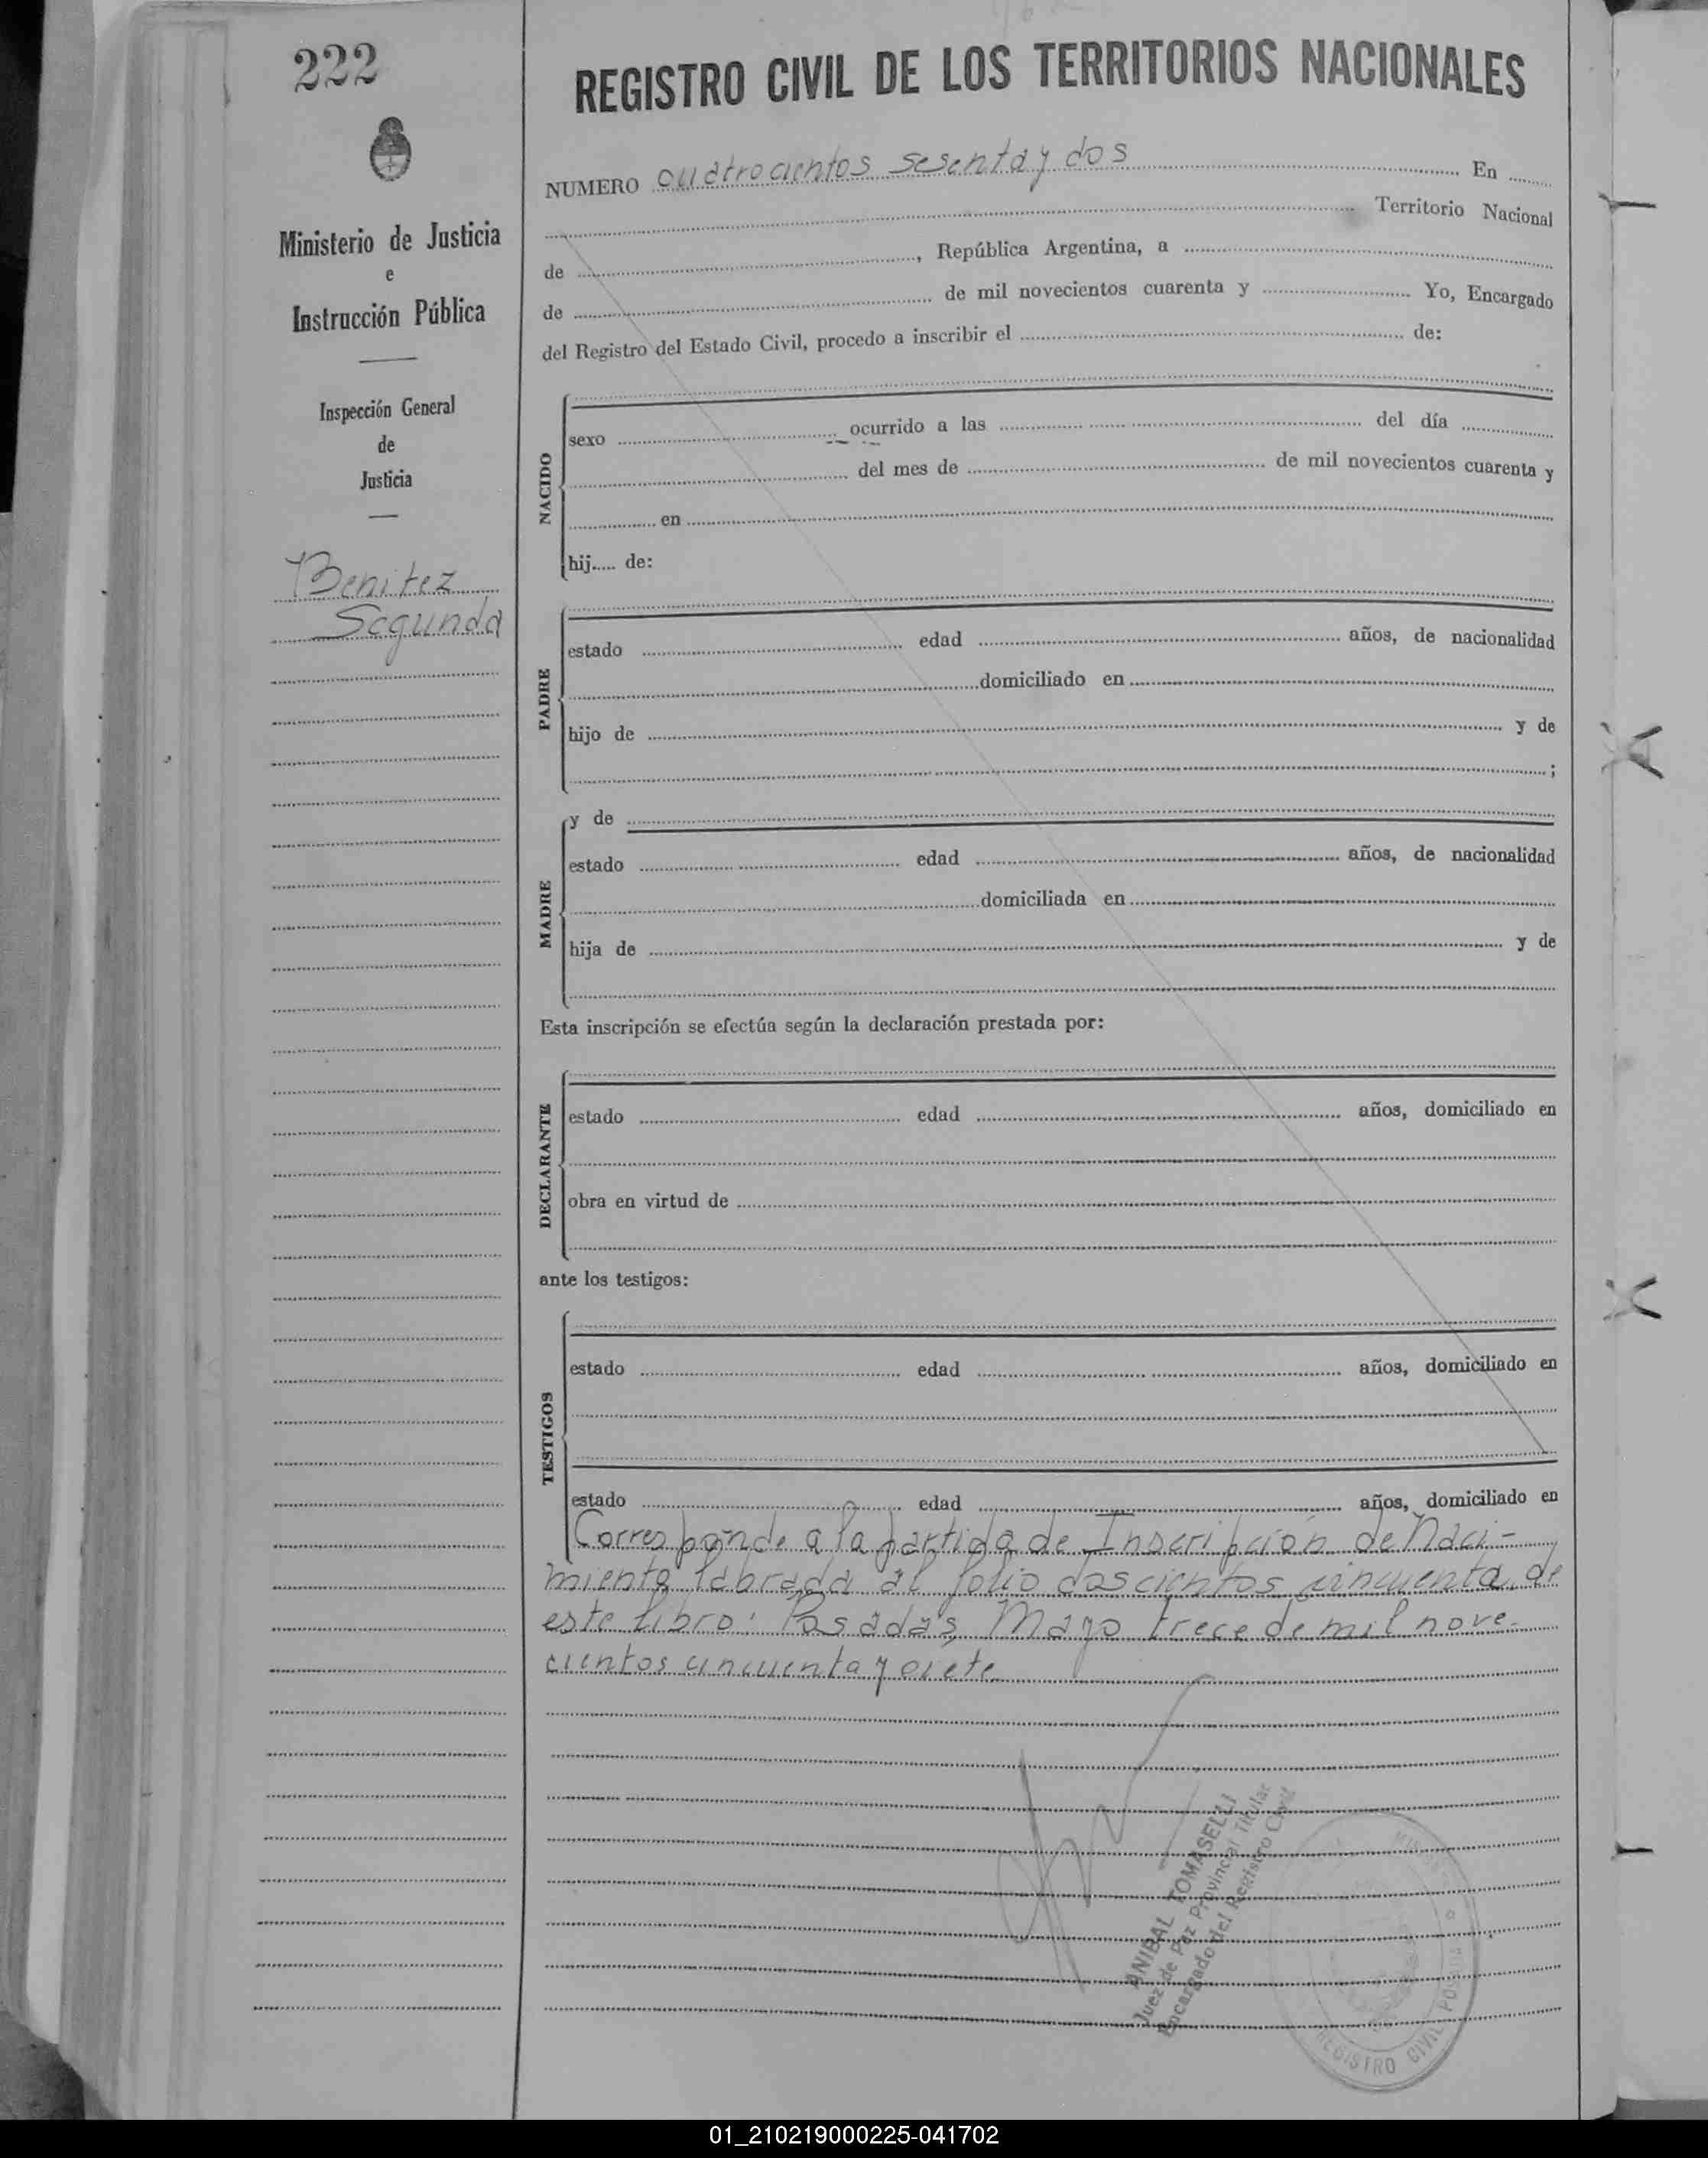 222
Ministerio de Justicia
e
Instrucción Pública
Inspección General
de
Justicia
Benitez
Segunda
REGISTRO CIVIL DE LOS TERRITORIOS NACIONALES
NUMERO cuatrocientos sesenta y dos En
Territorio Nacional
de , República Argentina, a
de de mil novecientos cuarenta y Yo, Encargado
del Registro del Estado Civil, procedo a inscribir el de:
NACIDO
sexo ocurrido a las del día
del mes de de mil novecientos cuarenta y
en
hij..... de:
PADRE
estado edad años, de nacionalidad
domiciliado en
hijo de y de
;
MADRE
y de
estado edad años, de nacionalidad
domiciliada en
hija de y de
Esta inscripción se efectúa según la declaración prestada por:
DECLARANTE
estado edad años, domiciliado en
obra en virtud de
ante los testigos:
TESTIGOS
estado edad años, domiciliado en
estado edad años, domiciliado en
Corresponde a la partida de Inscripción de Naci-
miento labrada al folio doscientos cincuenta de
este libro: Posadas, Mayo trece de mil nove-
cientos cincuenta y siete
ANIBAL TOMASELLI
Juez de Paz Provincial Titular
Encargado del Registro Civil
REGISTRO CIVIL
01_210219000225-041702